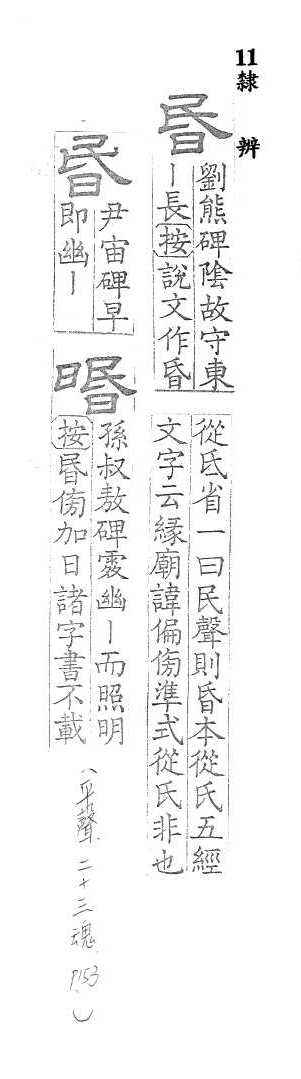 11 隸辨
昬
劉熊碑陰故守東
丨長按說文作昏
從氐省一曰民聲則昏本從氏五經
文字云緣廟諱偏傍準式從氏非也
昬
尹宙碑早
即幽丨
孫叔敖碑 幽丨而照明
按昬傍加日諸字書不載
(平聲 二十三魂 P153)